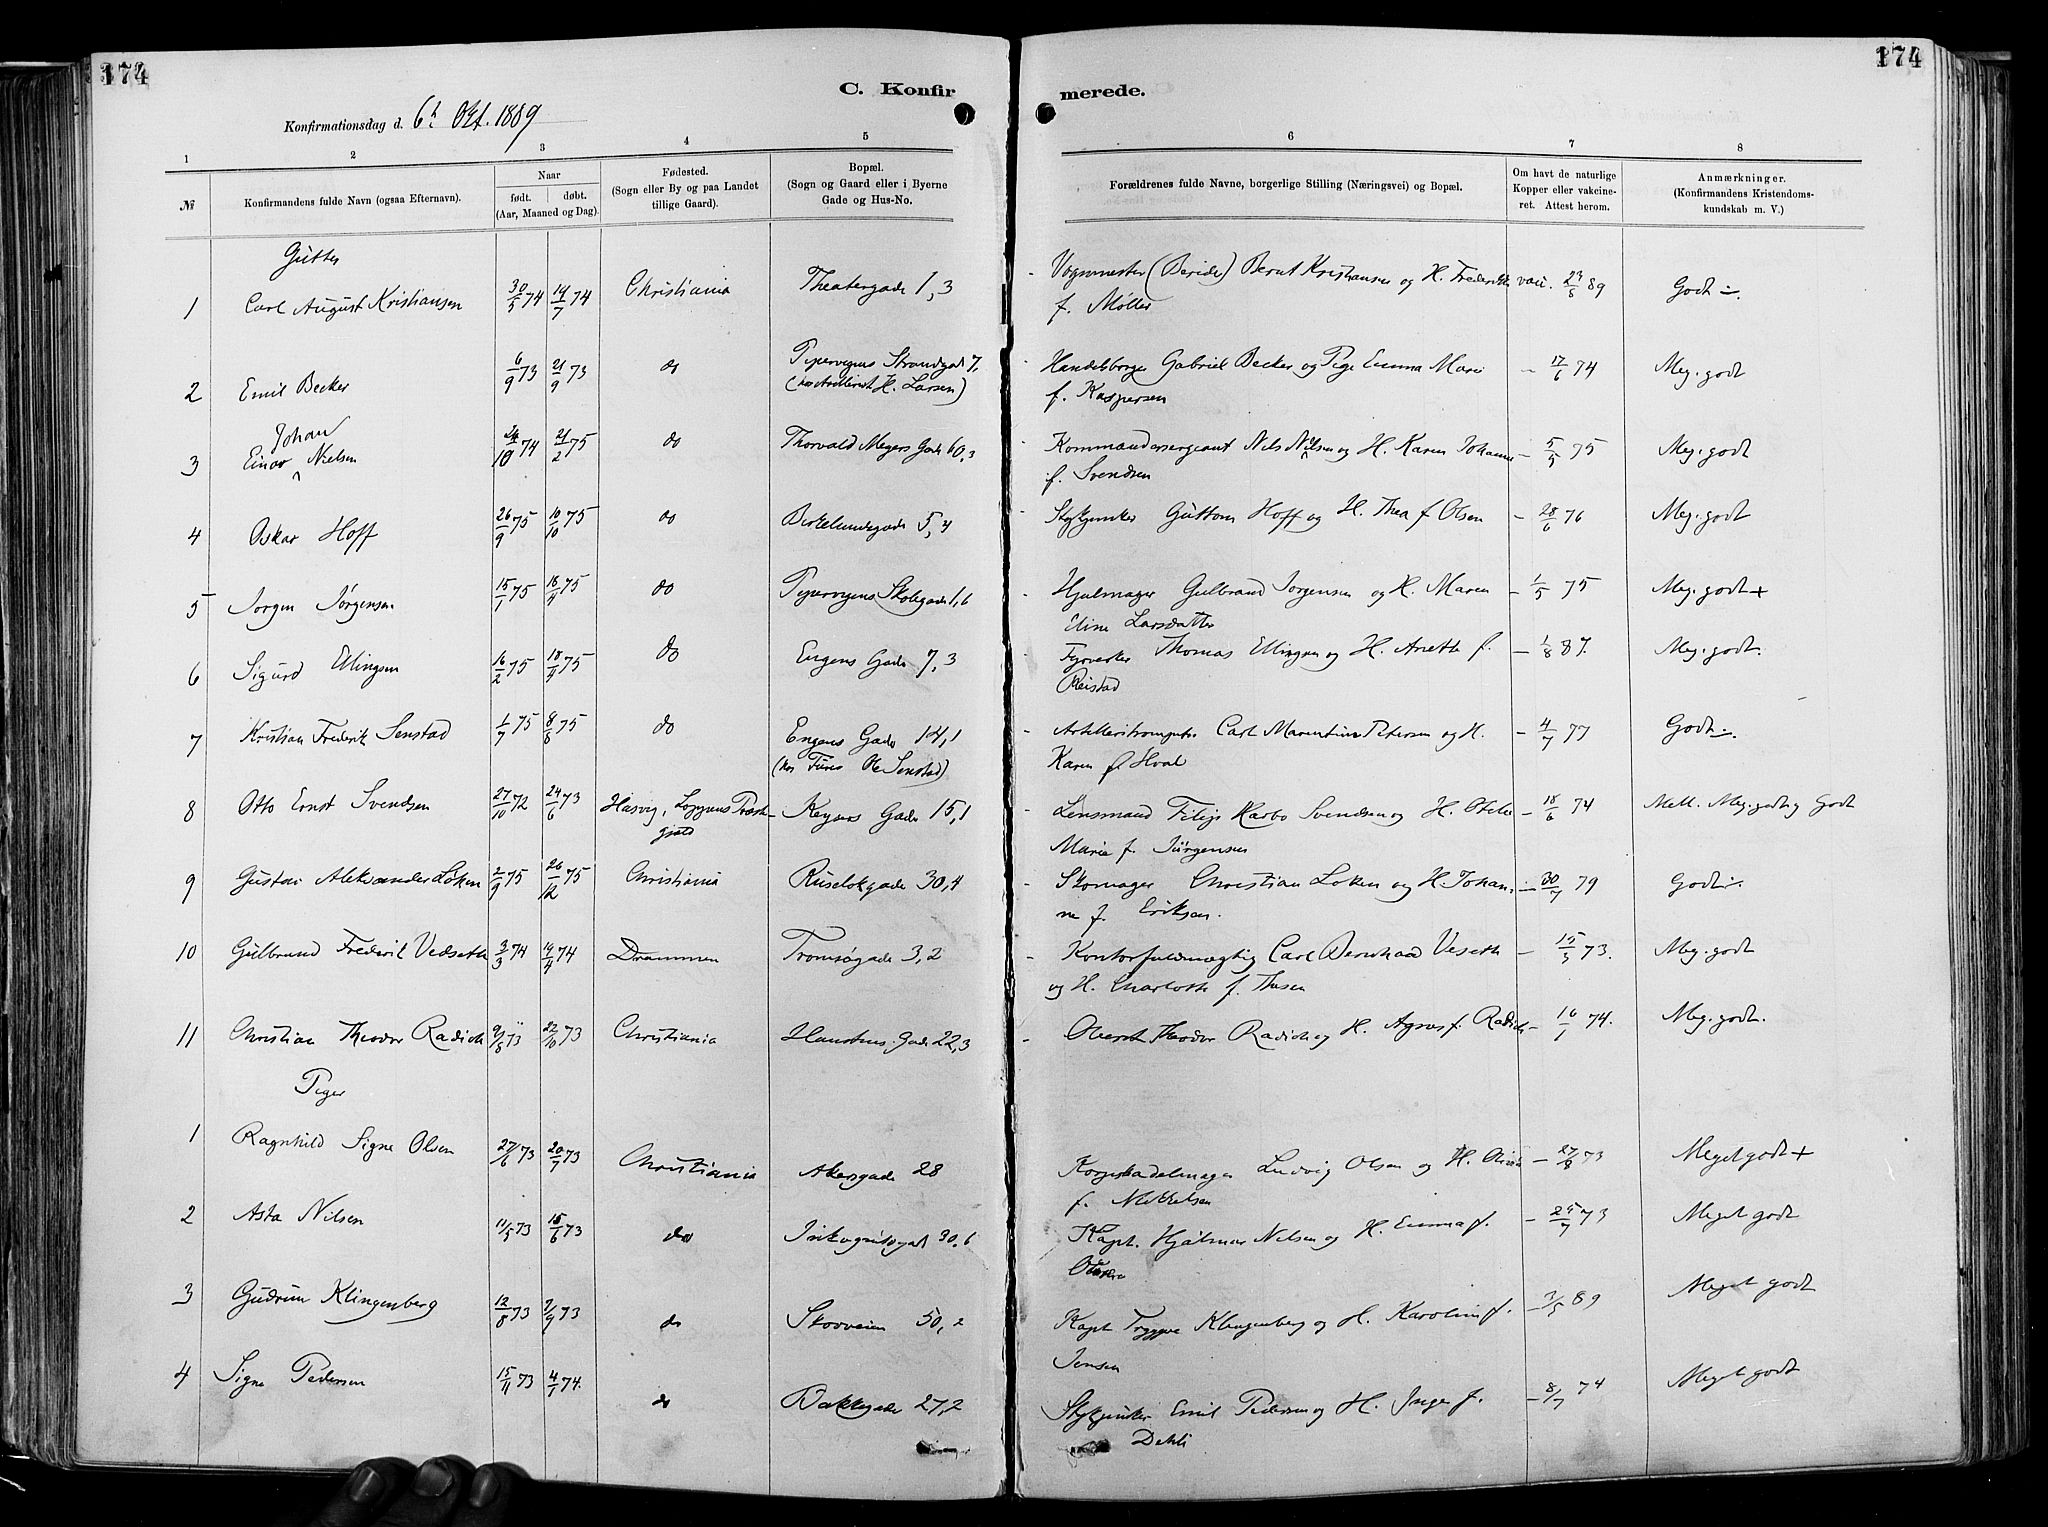 174
174
C. Konfir
merede.
Konfirmationsdag d. 6t Okt. 1889
1 2 3 4 5 6 7 8
№
Konfirmandens fulde Navn (ogsaa Efternavn).
Naar
født. døbt.
(Aar, Maaned og Dag).
Fødested.
(Sogn eller By og paa Landet
tillige Gaard).
Bopæl.
(Sogn og Gaard eller i Byerne
Gade og Hus-No.
Forældrenes fulde Navne, borgerlige Stilling (Næringsvei) og Bopæl.
Om havt de naturlige
Kopper eller vakcine-
ret. Attest herom.
Anmærkninger.
(Konfirmandens Kristendoms-
kundskab m. V.)
Gutter
1 Carl August Kristiansen 30/5 74 19/7 74 Christiania Theatergade 1, 3 Vognmester (Beride) Bernt Kristiansen og H. Frederikke vacc. 23/8 89 Godt ÷.
f. Møller
2 Emil Becker 6/9 73 21/9 73 do Pipervigens Strandgad 7, Handelsborger Gabriel Becker og Pige Emma Marie – 17/6 74 Meg. godt
(hos H. Larsen) f. Kaspersen
Johan
3 Einar Nielsen 24/10 74 21/2 75 do Thorvald Meyers Gade 60, 3 Kommandersergeant Nils Nilsen og H. Karen Johanne – 5/5 75 Meg. godt
f. Svendsen
4 Oskar Hoff 26/9 75 10/10 75 do Birkelundegade 5, 4 Stykjunker Guttorm Hoff og H. Thea f. Olsen – 28/6 76 Meg. godt
5 Jørgen Jørgensen 15/1 75 18/4 75 do Pipervigens Skolegade 1, 6 Hjulmager Gulbrand Jørgensen og H. Maren – 1/5 75 Meg. godt +
Eline Larsdatter
6 Sigurd Ellingsen 16/2 75 18/4 75 do Engens Gade 7, 3 Fyrverker Thomas Ellingsen og H. Anette f. – 1/8 87. Meg. godt.
Reistad
7 Kristian Frederik Senstad 1/7 75 8/8 75 do Engens Gade 14, 1 Artilleritrompeter Carl Marentius Petersen og H. – 4/7 77 Godt ÷.
(hos Ole Senstad) Karen f. Hval
8 Otto Ernst Svendsen 27/10 72 24/6 73 Hasvig, Loppens Præste- Keysers Gade 15, 1 Lensmand Filip Karbo Svendsen og H. Otelie – 18/6 74 Mell. Meg. godt og Godt
gjeld Marie f. Jürgensen
9 Gustav Aleksander Løken 2/9 75 26/12 75 Christiania Ruseløkgade 30, 4 Skomager Christian Løken og H. Johan- – 30/7 79 Godt ÷.
ne f. Eriksen.
10 Gulbrand Frederik Vedseth 3/3 74 19/4 74 Drammen Tromsøgade 3, 2 Kontorfuldmægtig Carl Bernhard Veseth – 15/5 73. Meg. godt
og H. Charlotte f. Thesen
11 Christian Theodor Radich 9/8 73 22/10 73 Christiania Hausmns. Gade 22, 3 Oberst Theodor Radich og H. Agnes f. Radich – 16/1 74. Meg. godt.
Piger
1 Ragnhild Signe Olsen 27/6 73 20/7 73 Christiania Akersgade 28 Ludvig Olsen og H. – 27/8 73 Meget godt +
f. Mikkelsen
2 Asta Nilsen 11/5 73 15/6 73 do 30, 6 Kapt. Hjalmar Nilsen og H. Emma f. – 25/7 73 Meget godt
3 Gudrun Klingenberg 12/8 73 7/9 73 do Skovveien 50, 2 Kapt Tryggve Klingenberg og H. Karoline f. – 3/5 89 Meget godt
Jensen
4 Signe Pedersen 15/11 73 4/1 74. do Bakkegade 27, 2 Stykjunker Emil Pedersen og H. Inger f. – 8/7 74 Meget godt
Dehli